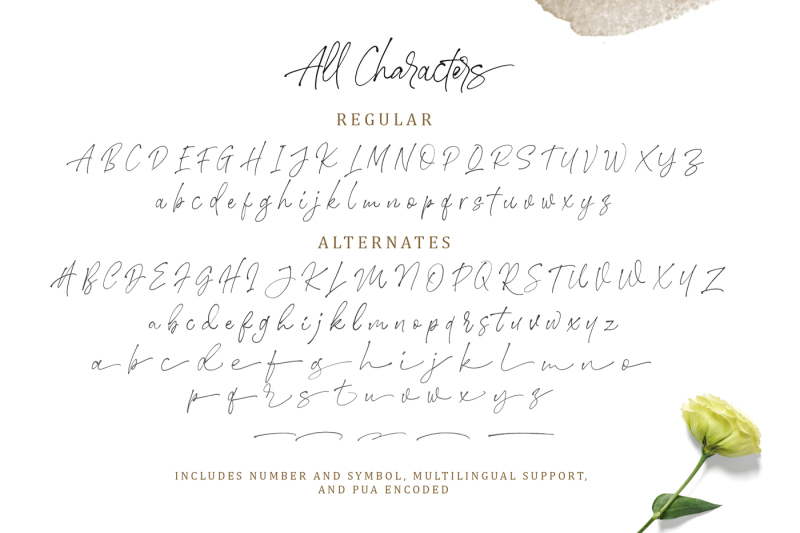 All Characters
REGULAR
A B C D E F G H I J K L M N O P Q R S T U V W X Y Z
a b c d e f g h i j k l m n o p q r s t u v w x y z
ALTERNATES
A B C D E F G H I J K L M N O P Q R S T U V W X Y Z
a b c d e f g h i j k l m n o p q r s t u v w x y z
a b c d e f g h i j k l m n o
p q r s t u v w x y z
INCLUDES NUMBER AND SYMBOL, MULTILINGUAL SUPPORT,
AND PUA ENCODED